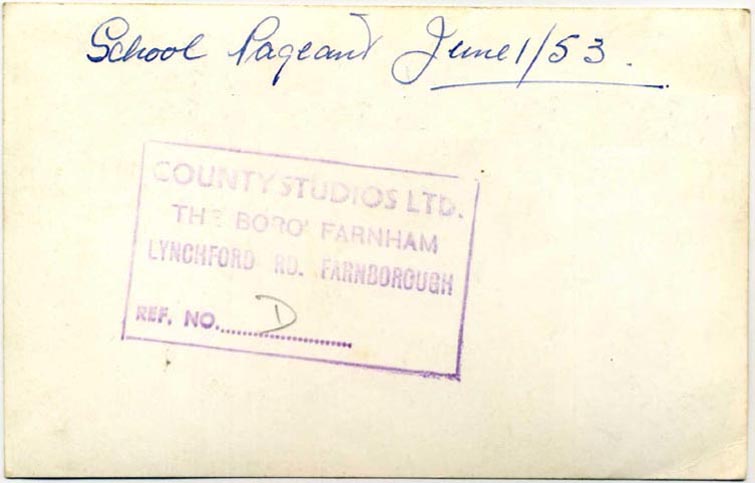 School Pageant June 1/53.
COUNTY STUDIOS LTD.
THE BORO' FARNHAM
LYNCHFORD RD. FARNBOROUGH
REF. NO. D